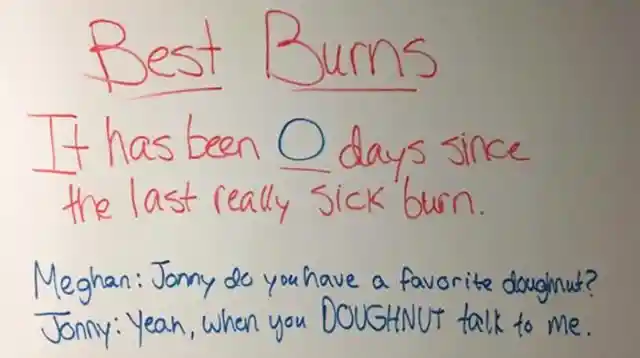 Best Burns
It has been 0 days since
the last really sick burn.
Meghan: Jonny do you have a favorite doughnut?
Jonny: Yeah, when you DOUGHNUT talk to me.